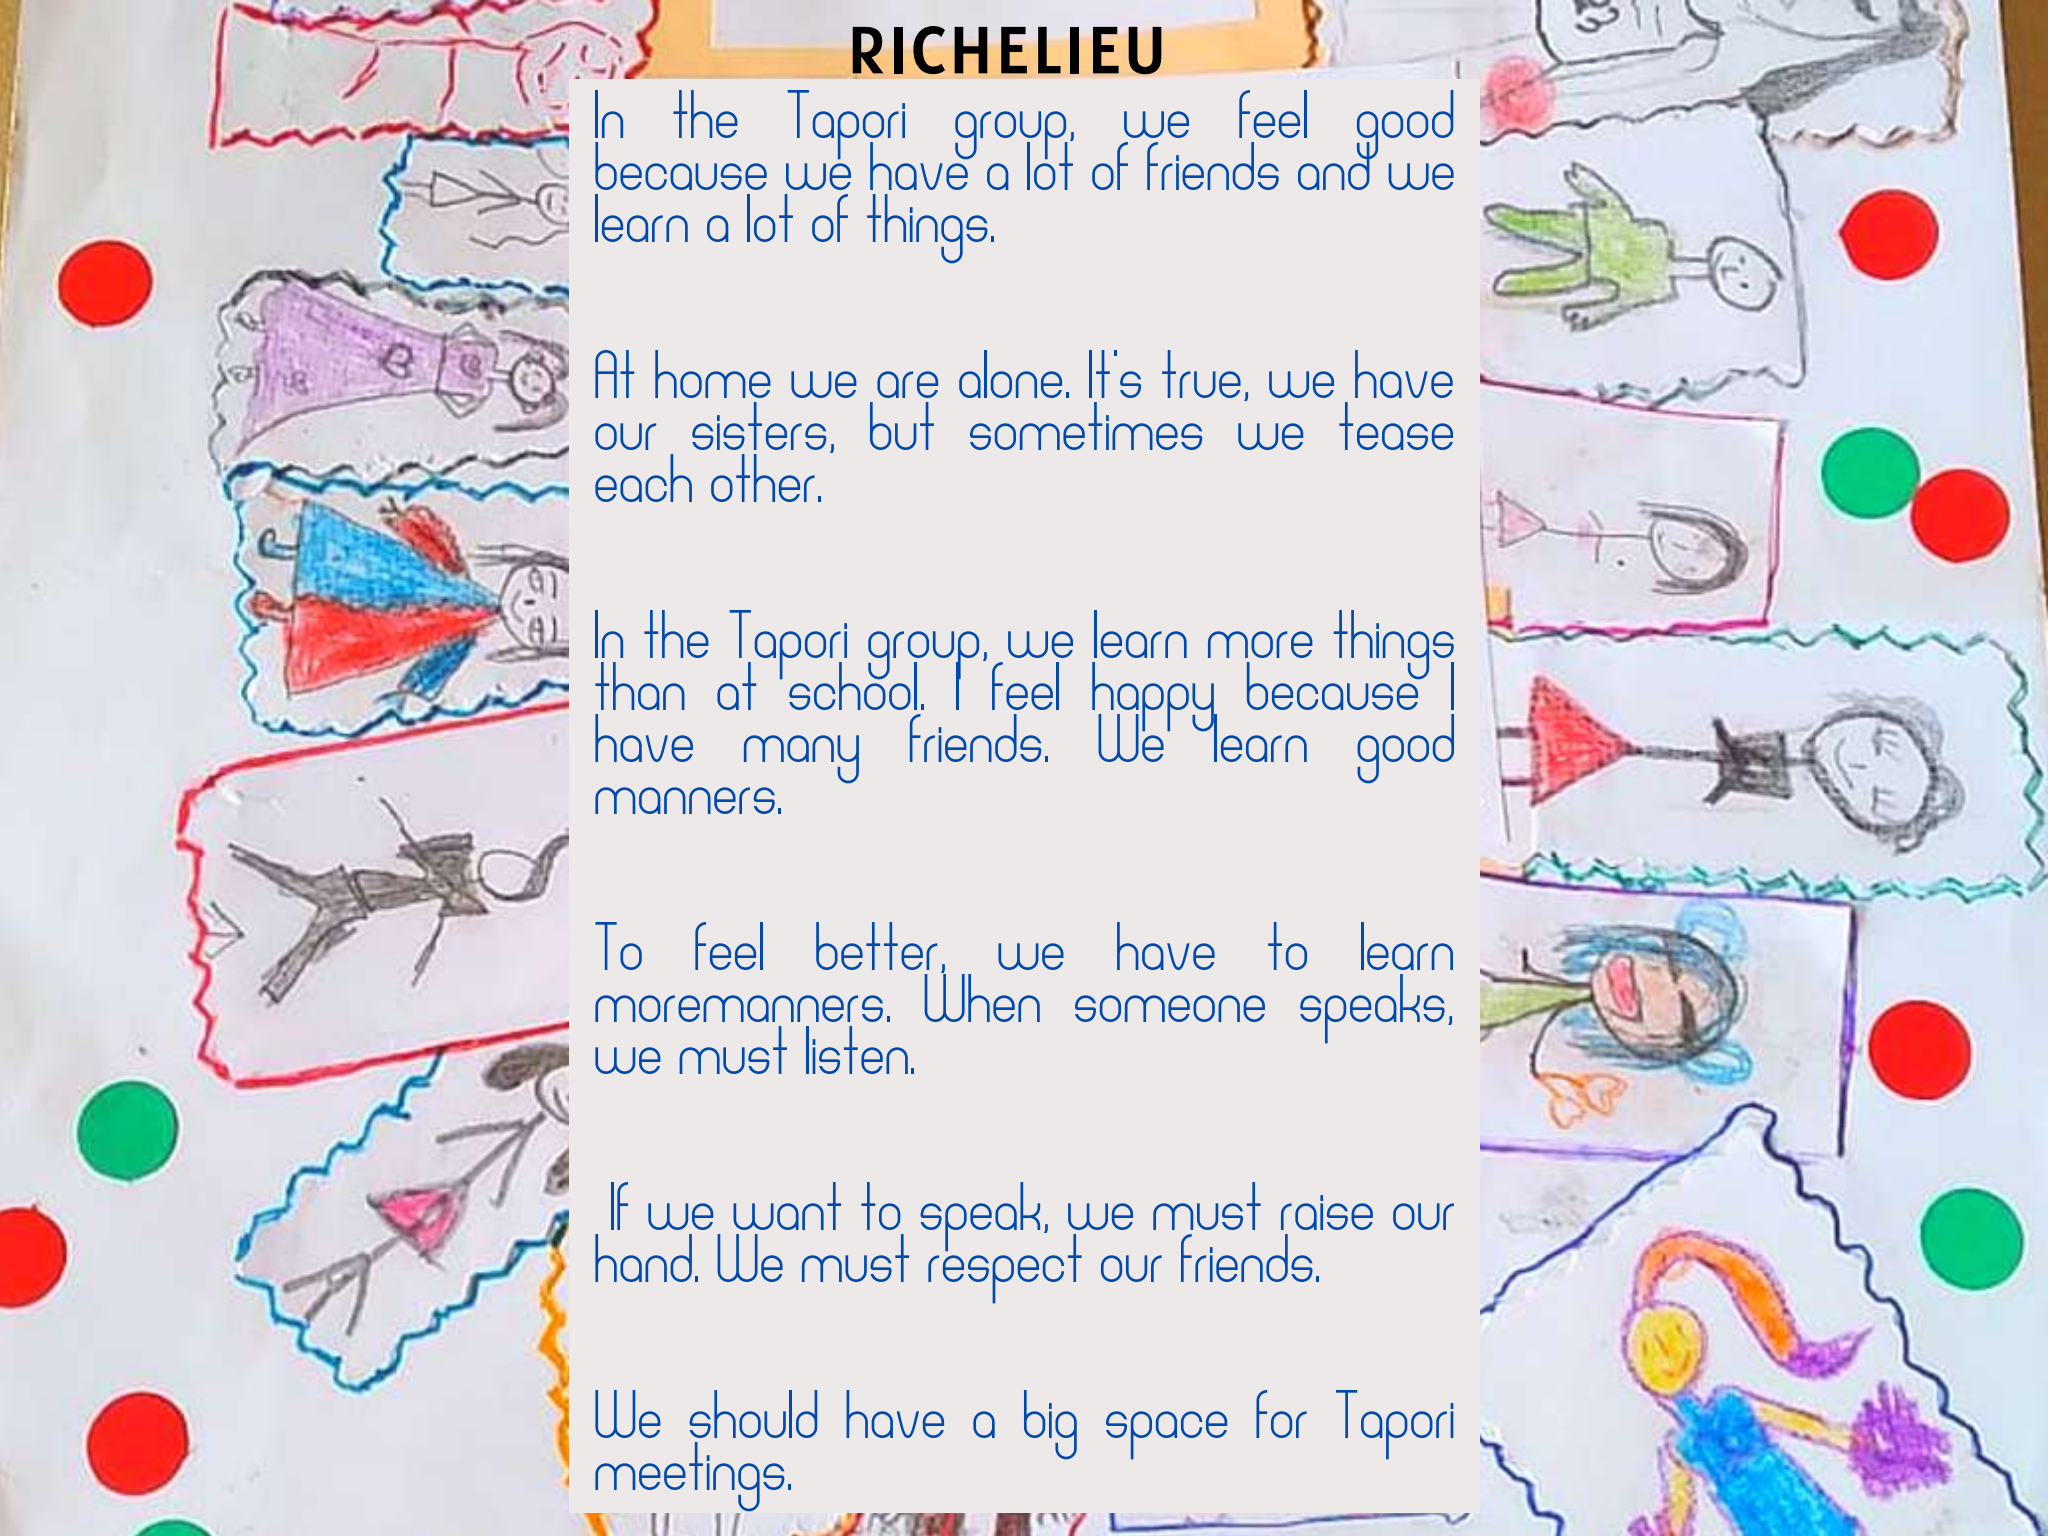 RICHELIEU
In the Tapori group, we feel good
because we have a lot of friends and we
learn a lot of things.
At home we are alone. It's true, we have
our sisters, but sometimes we tease
each other.
In the Tapori group, we learn more things
than at school. I feel happy because I
have many friends. We learn good
manners.
To feel better, we have to learn
moremanners. When someone speaks,
we must listen.
If we want to speak, we must raise our
hand. We must respect our friends.
We should have a big space for Tapori
meetings.